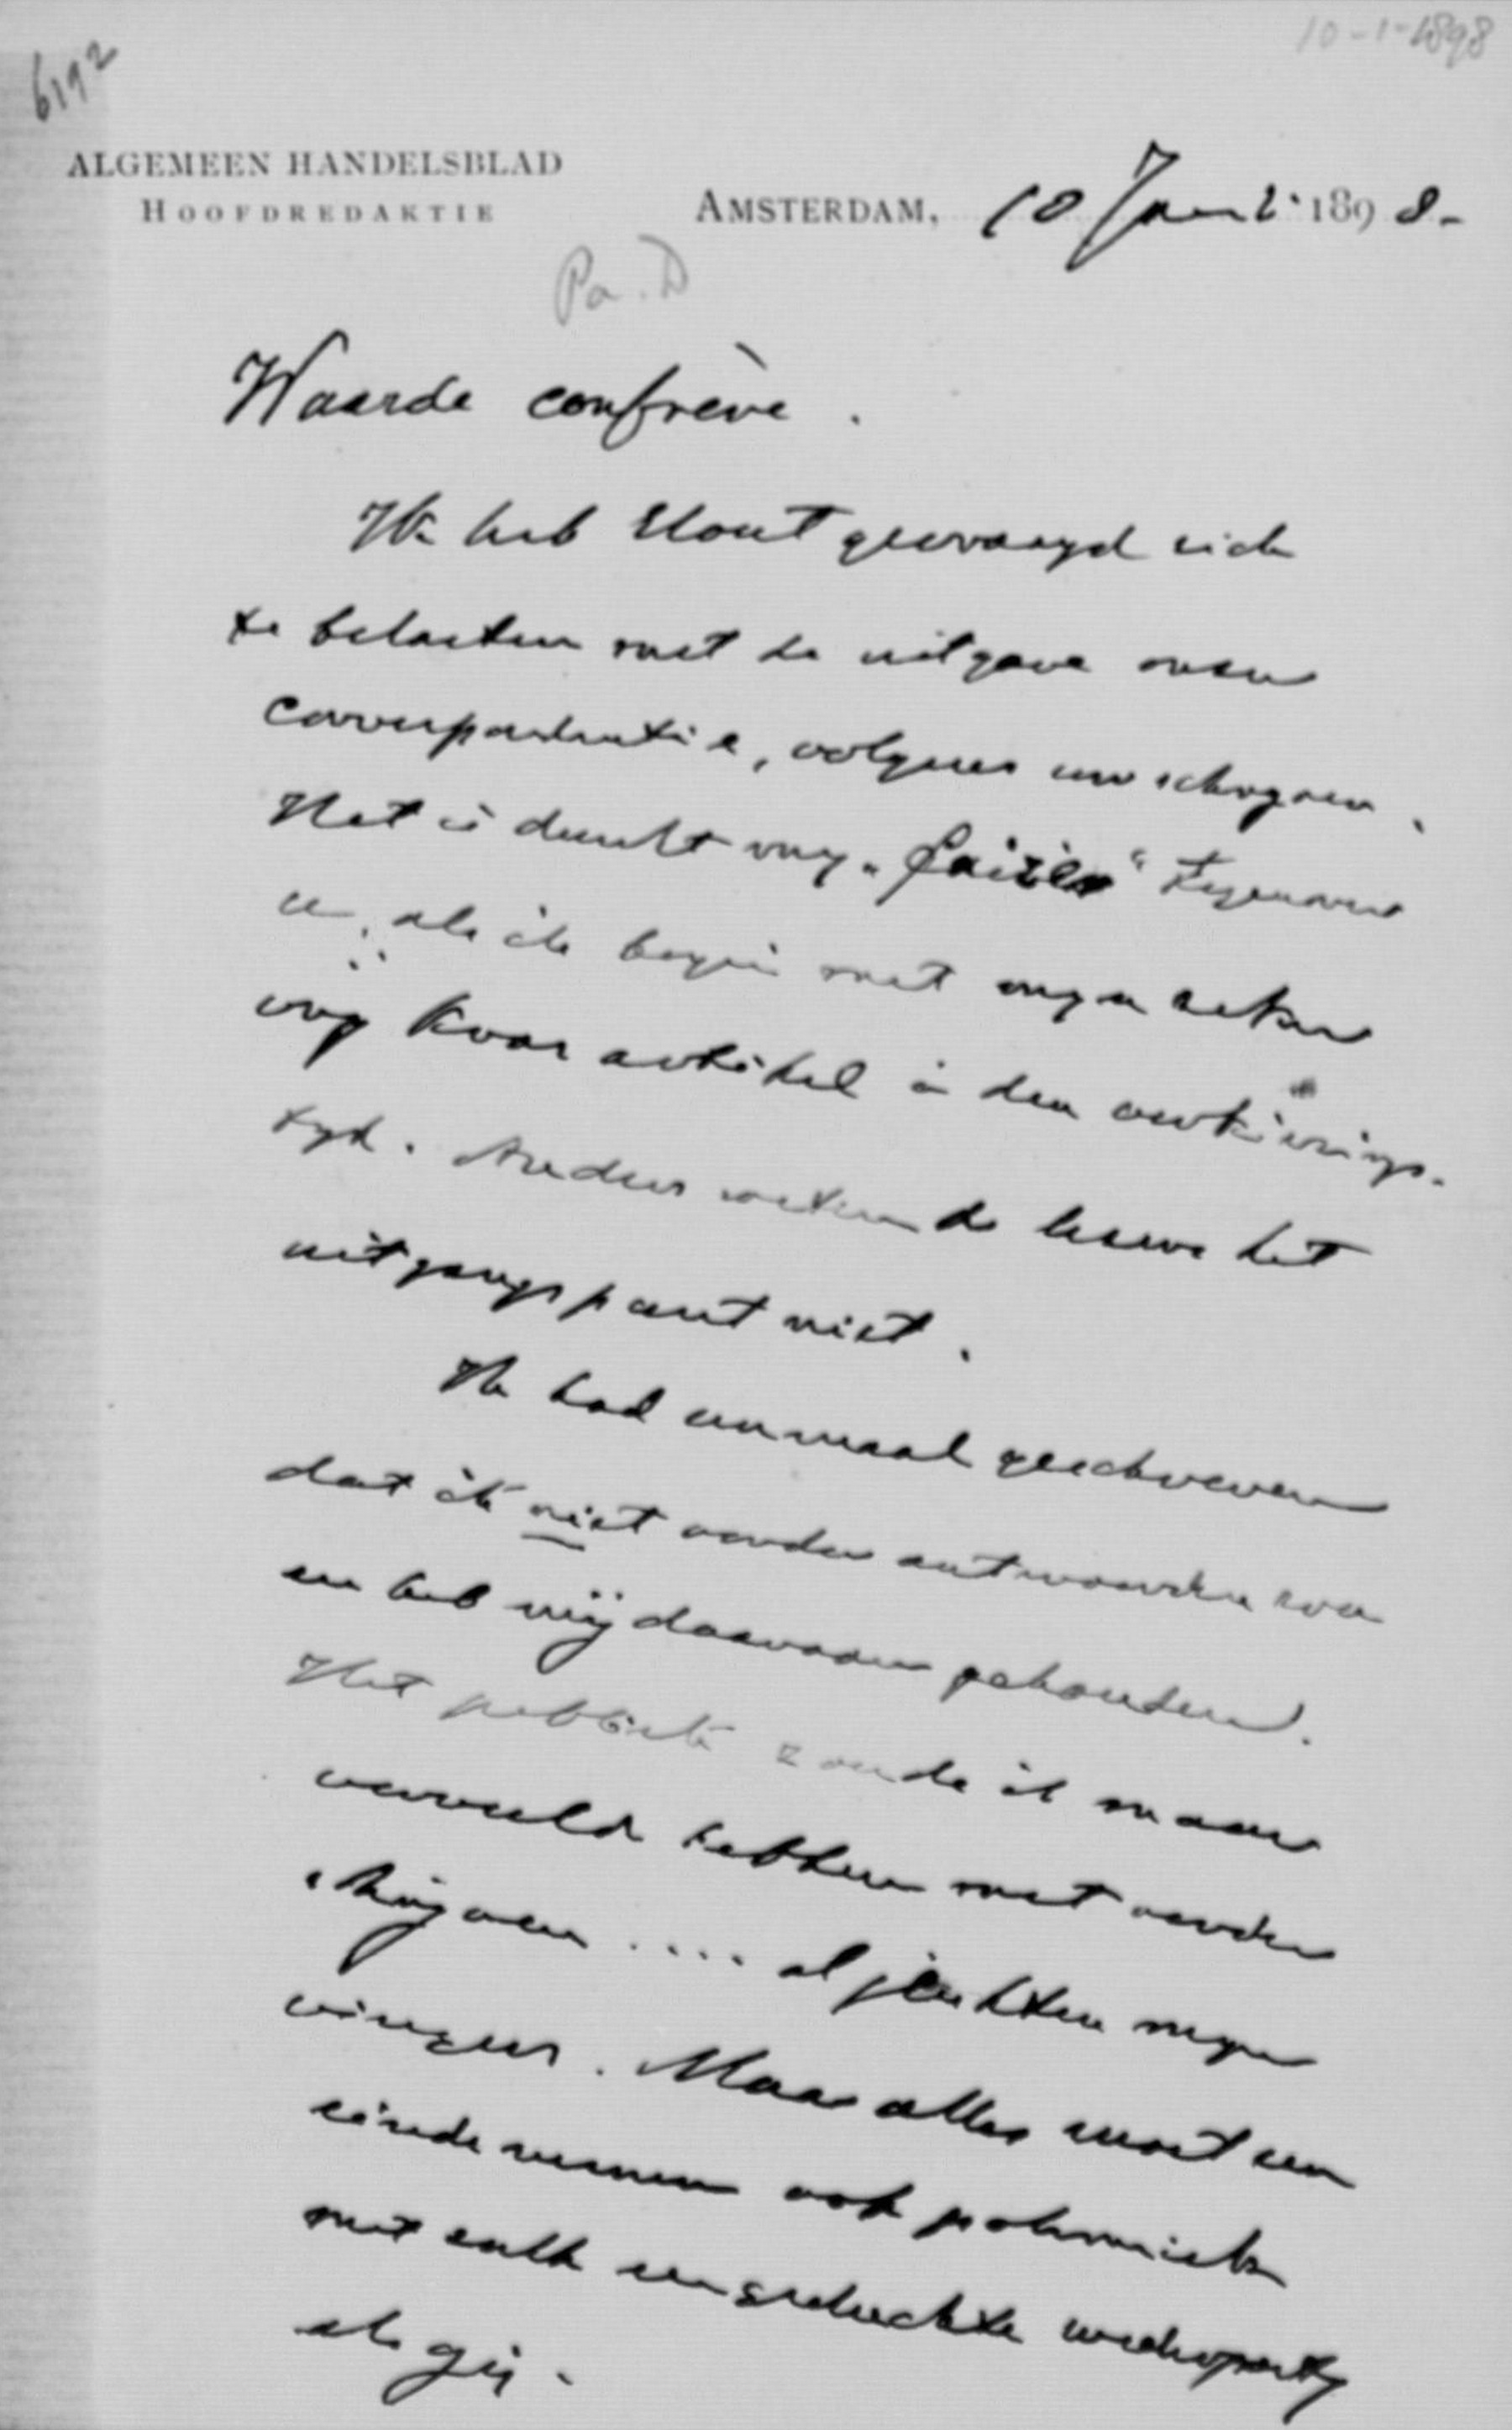 10-1-1898
6192
ALGEMEEN HANDELSBLAD
HOOFDREDAKTIE
AMSTERDAM, 10 Januari 1898.
Pa. D
Waarde confrère.
Ik heb Elout gevraagd zich
te belasten met de uitgave onzer
correspondentie, volgens uw
Het is dunkt mij "fair" tegenover
u, als ik begin met mijn
artikel in den verkiezings-
tijd. Anders weten de lezers het
uitgangspunt niet.
Ik had eenmaal geschreven
dat ik niet verder antwoorden zou
en heb mij daaraan gehouden.
Het publiek zoude ik maar
verveeld hebben met verder
schrijven .... al jeukten mijn
vingers. Maar alles moet een
einde nemen ook polemiek
met zulk een geduchte wederpartij
als gij.